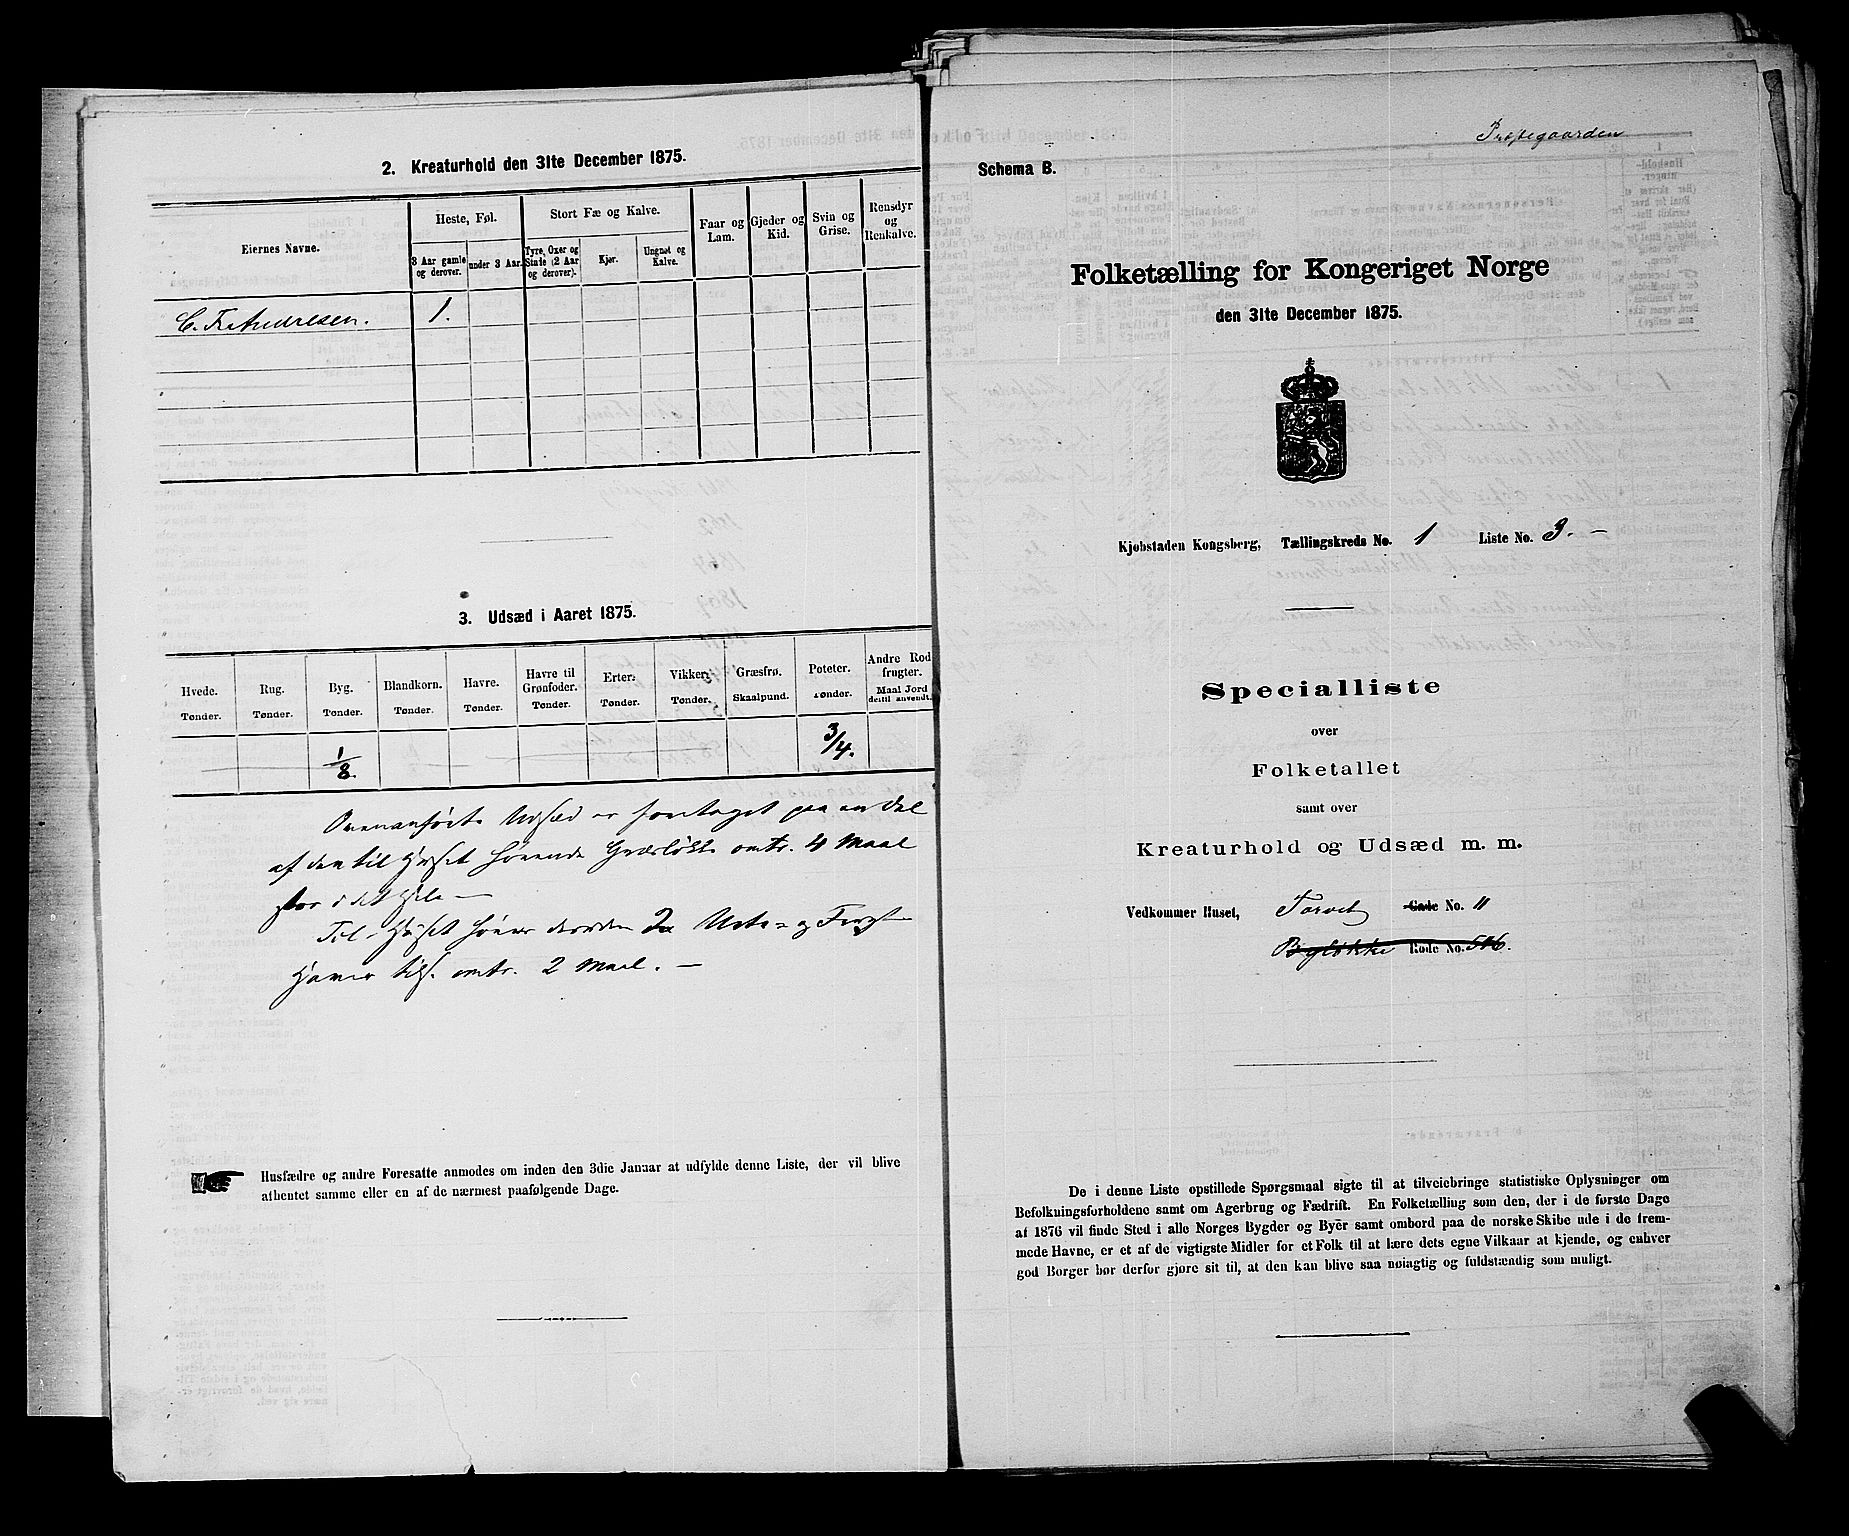 2. Kreaturhold den 31te December 1875.
Eiernes Navne.
Heste, Føl.
Stort Fæ og Kalve.
Faar og Lam.
Gjeder og Kid.
Svin og Grise.
Rensdyr og Renkalve.
3 Aar gamle og derover.
under 3 Aar.
Tyre, Oxer og Stude (2 Aar og derover).
Kjør.
Ungnøt og Kalve.
C. Fr. Andresen. 1.
3. Udsæd i Aaret 1875.
Hvede. Tønder.
Rug. Tønder.
Byg. Tønder.
Blandkorn. Tønder.
Havre. Tønder.
Havre til Grønfoder. Tønder.
Erter. Tønder.
Vikker. Tønder.
Græsfrø. Skaalpund.
Poteter. Tønder.
Andre Rodfrugter. Maal Jord dertil anvendt.
1/8. 3/4.
Ovenanførte Udsæd er foretaget paa en Del
af den til Huset hørende Græsløkke omtr. 4 Maal
stor i det Hele —
Til Huset hører desuden 2 Urte- og Frugt
Haver tils. omtr. 2 Maal. —
Husfædre og andre Foresatte anmodes om inden den 3die Januar at udfylde denne Liste, der vil blive
afhentet samme eller en af de nærmest paafølgende Dage.
Præstegaarden
Schema B.
Folketælling for Kongeriget Norge
den 31te December 1875.
Kjøbstaden Kongsberg, Tællingskreds No. 1 Liste No. 3. —
Specialliste
over
Folketallet
samt over
Kreaturhold og Udsæd m. m.
Vedkommer Huset, Torvet Gade No. 11
Bygløkke Rode No. 516.
De i denne Liste opstillede Spørgsmaal sigte til at tilveiebringe statistiske Oplysninger om
Befolkningsforholdene samt om Agerbrug og Fædrift. En Folketælling som den, der i de første Dage
af 1876 vil finde Sted i alle Norges Bygder og Byer samt ombord paa de norske Skibe ude i de frem-
mede Havne, er et af de vigtigste Midler for et Folk til at lære dets egne Vilkaar at kjende, og enhver
god Borger bør derfor gjøre sit til, at den kan blive saa nøiagtig og fuldstændig som muligt.